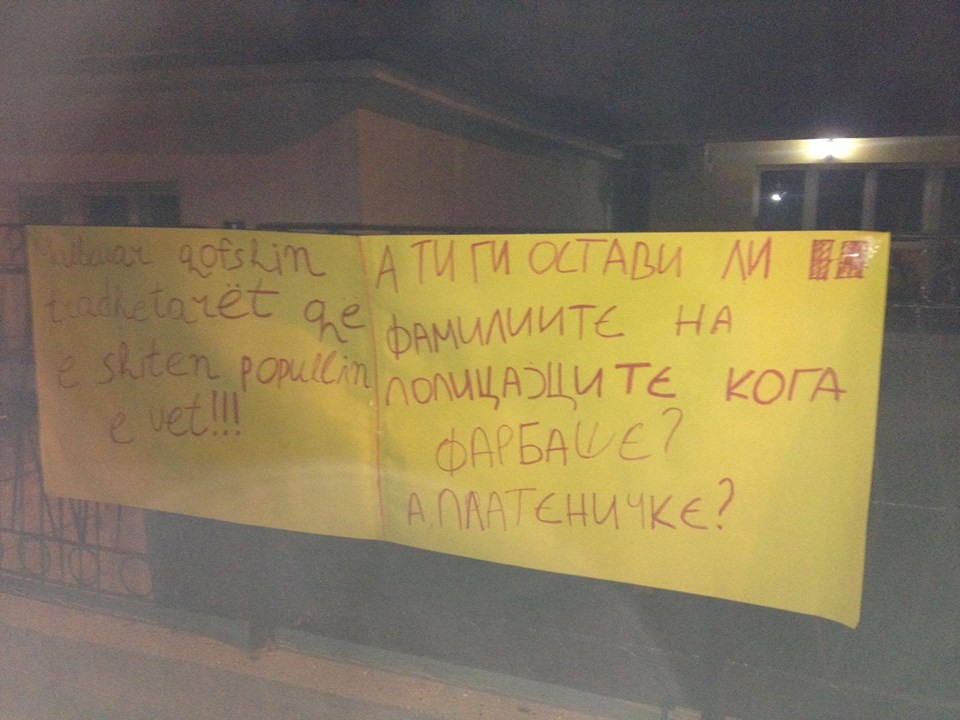 qofshin
tradhetarët që
e shiten popullin
e vet!!!
А ТИ ГИ ОСТАВИ ЛИ
ФАМИЛИИТЕ НА
ПОЛИЦАЈЦИТЕ КОГА
ФАРБАШЕ?
А, ПЛАТЕНИЧКЕ?